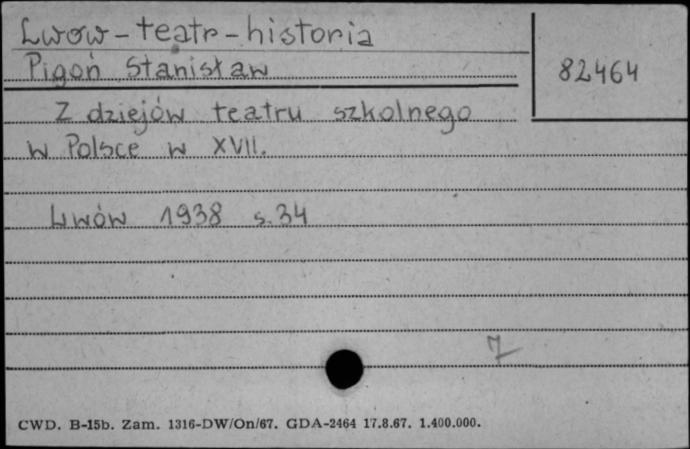 Lwów - teatr - historia
Pigoń Stanisław
82464
Z dziejów teatru szkolnego
w Polsce w XVII.
Lwów 1938 s. 34
7
CWD. B-15b. Zam. 1316-DW/On/67. GDA-2464 17.8.67. 1.400.000.